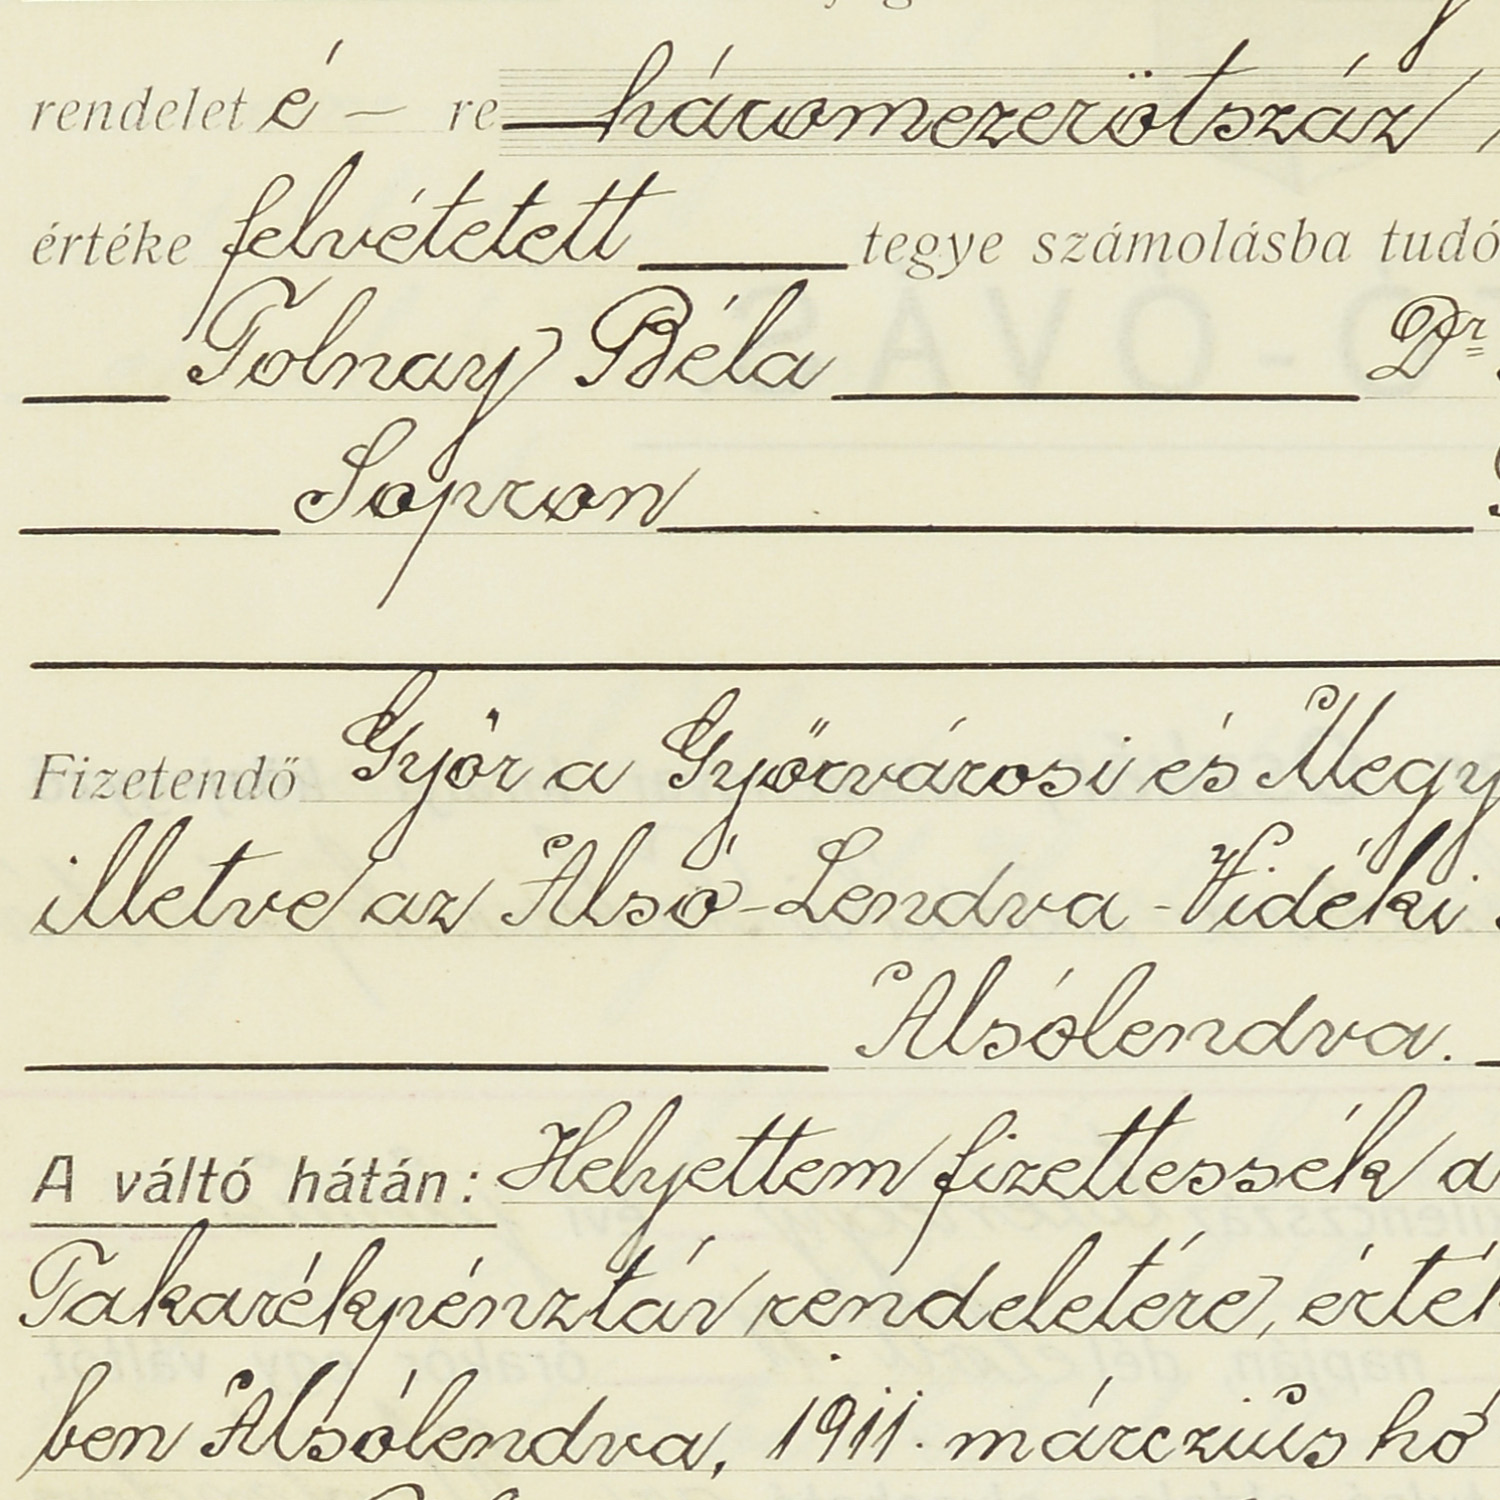 rendelet é — re háromezerötszáz
értéke felvétetett tegye számolásba tudó
Tolnay Béla Dr
Sopron
Fizetendő Győr a Győrvárosi és Megy
illetve az Alsó-Lendva-Vidéki
Alsólendva.
A váltó hátán: Helyettem fizettessék a
Takarékpénztár rendeletére, érték
ben Alsólendva, 1911. márczius hó